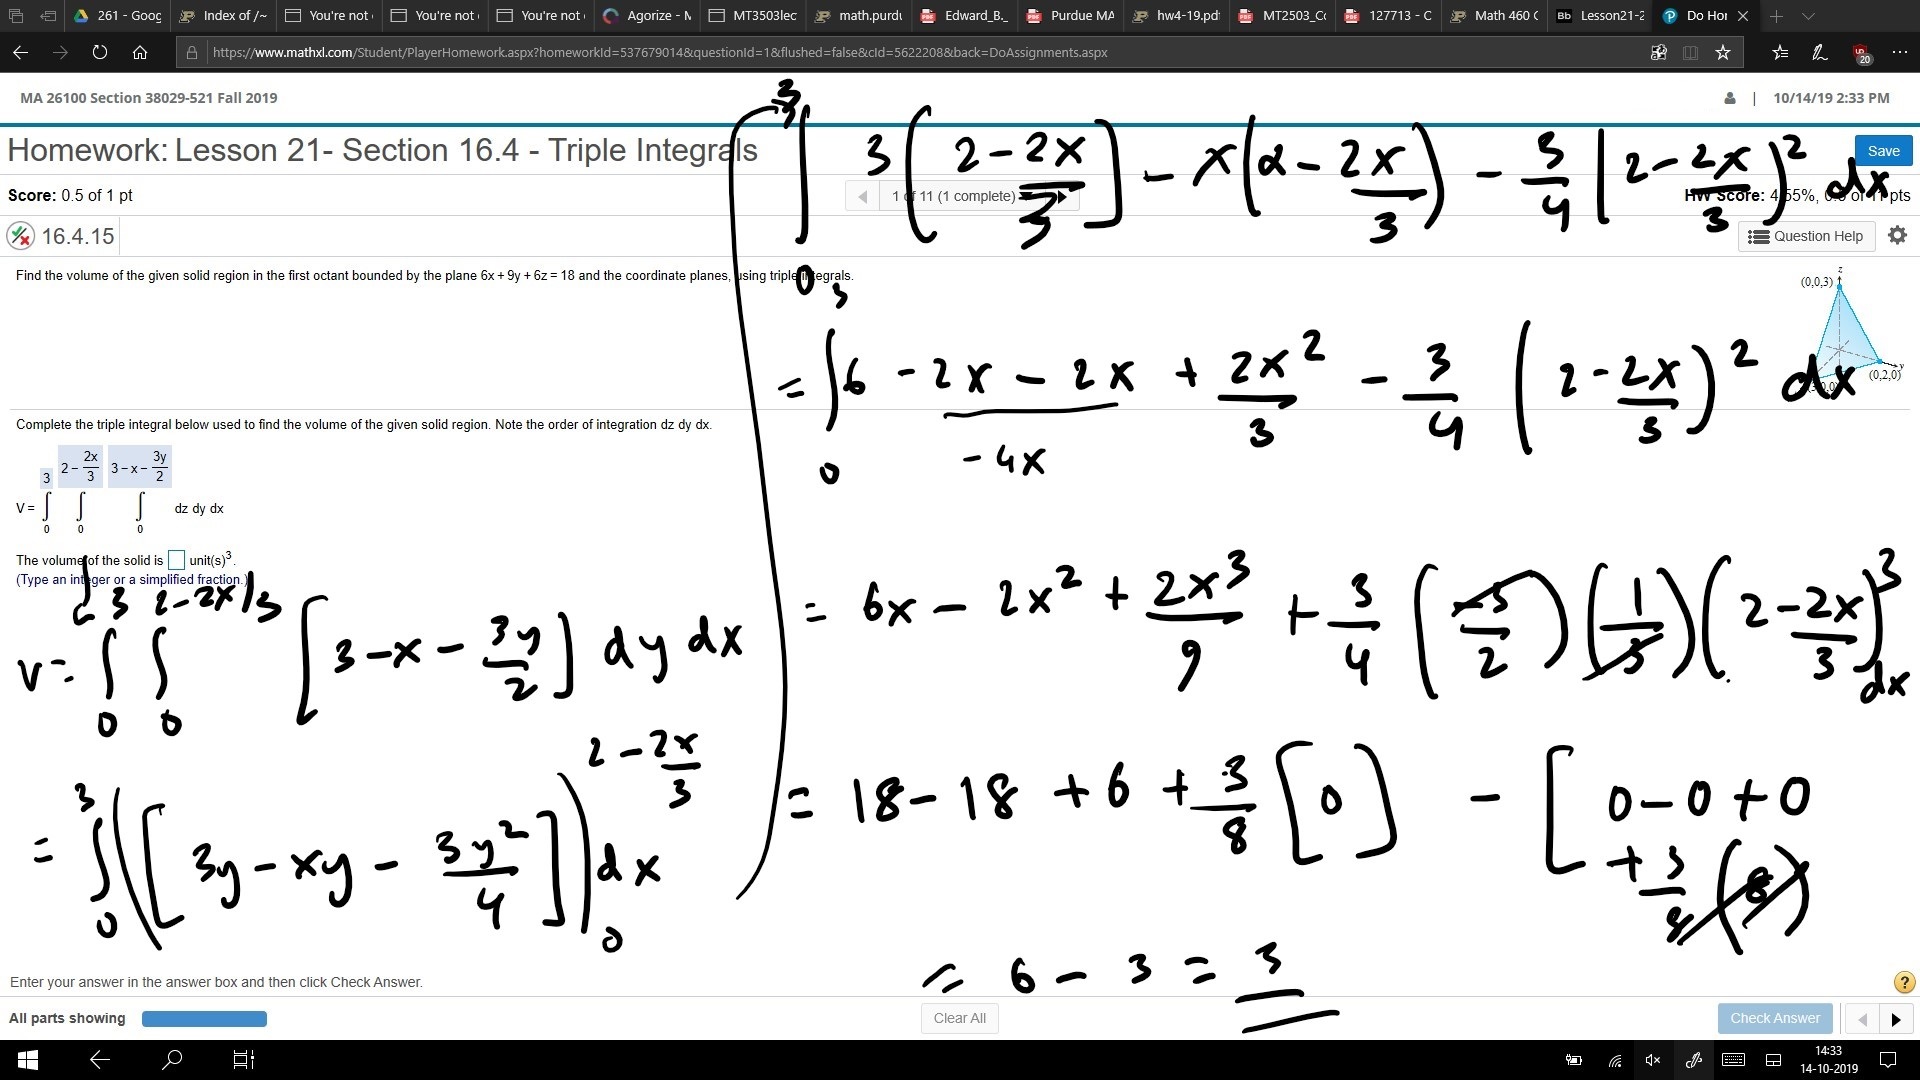 261 - Goog
Index of /~
You're not
You're not
You're not
Agorize - M
MT3503lec
math.purdu
Edward_B._
Purdue MA
hw4-19.pdf
MT2503_Co
127713 - C
Math 460 C
Bb Lesson21-2
Do Hor
https://www.mathxl.com/Student/PlayerHomework.aspx?homeworkId=537679014&questionId=1&flushed=false&cId=5622208&back=DoAssignments.aspx
20
MA 26100 Section 38029-521 Fall 2019
| 10/14/19 2:33 PM
Homework: Lesson 21- Section 16.4 - Triple Integrals
Save
Score: 0.5 of 1 pt
1 of 11 (1 complete)
HW Score: 4.55%, 0.5 of 11 pts
16.4.15
Question Help
Find the volume of the given solid region in the first octant bounded by the plane 6x + 9y + 6z = 18 and the coordinate planes, using triple integrals.
z
(0,0,3)
(0,2,0)
y
Complete the triple integral below used to find the volume of the given solid region. Note the order of integration dz dy dx.
V = ∫_0^3 ∫_0^{2 - 2x/3} ∫_0^{3 - x - 3y/2} dz dy dx
The volume of the solid is unit(s)³.
(Type an integer or a simplified fraction.)
V = ∫_0^3 ∫_0^{2-2x/3} [3-x-3y/2] dy dx
= ∫_0^3 ([3y-xy-3y²/4])_0^{2-2x/3} dx
∫_0^3 3(2-2x/3) - x(2-2x/3) - 3/4 (2-2x/3)² dx
= ∫_0^3 6 - 2x - 2x + 2x²/3 - 3/4 (2-2x/3)² dx
- 4x
= 6x - 2x² + 2x³/9 + 3/4 (-3/2)(1/3)(2-2x/3)³ dx
= 18 - 18 + 6 + 3/8 [0] - [0-0+0
+ 3/8 (8)
= 6 - 3 = 3
Enter your answer in the answer box and then click Check Answer.
?
All parts showing
Clear All
Check Answer
14:33
14-10-2019